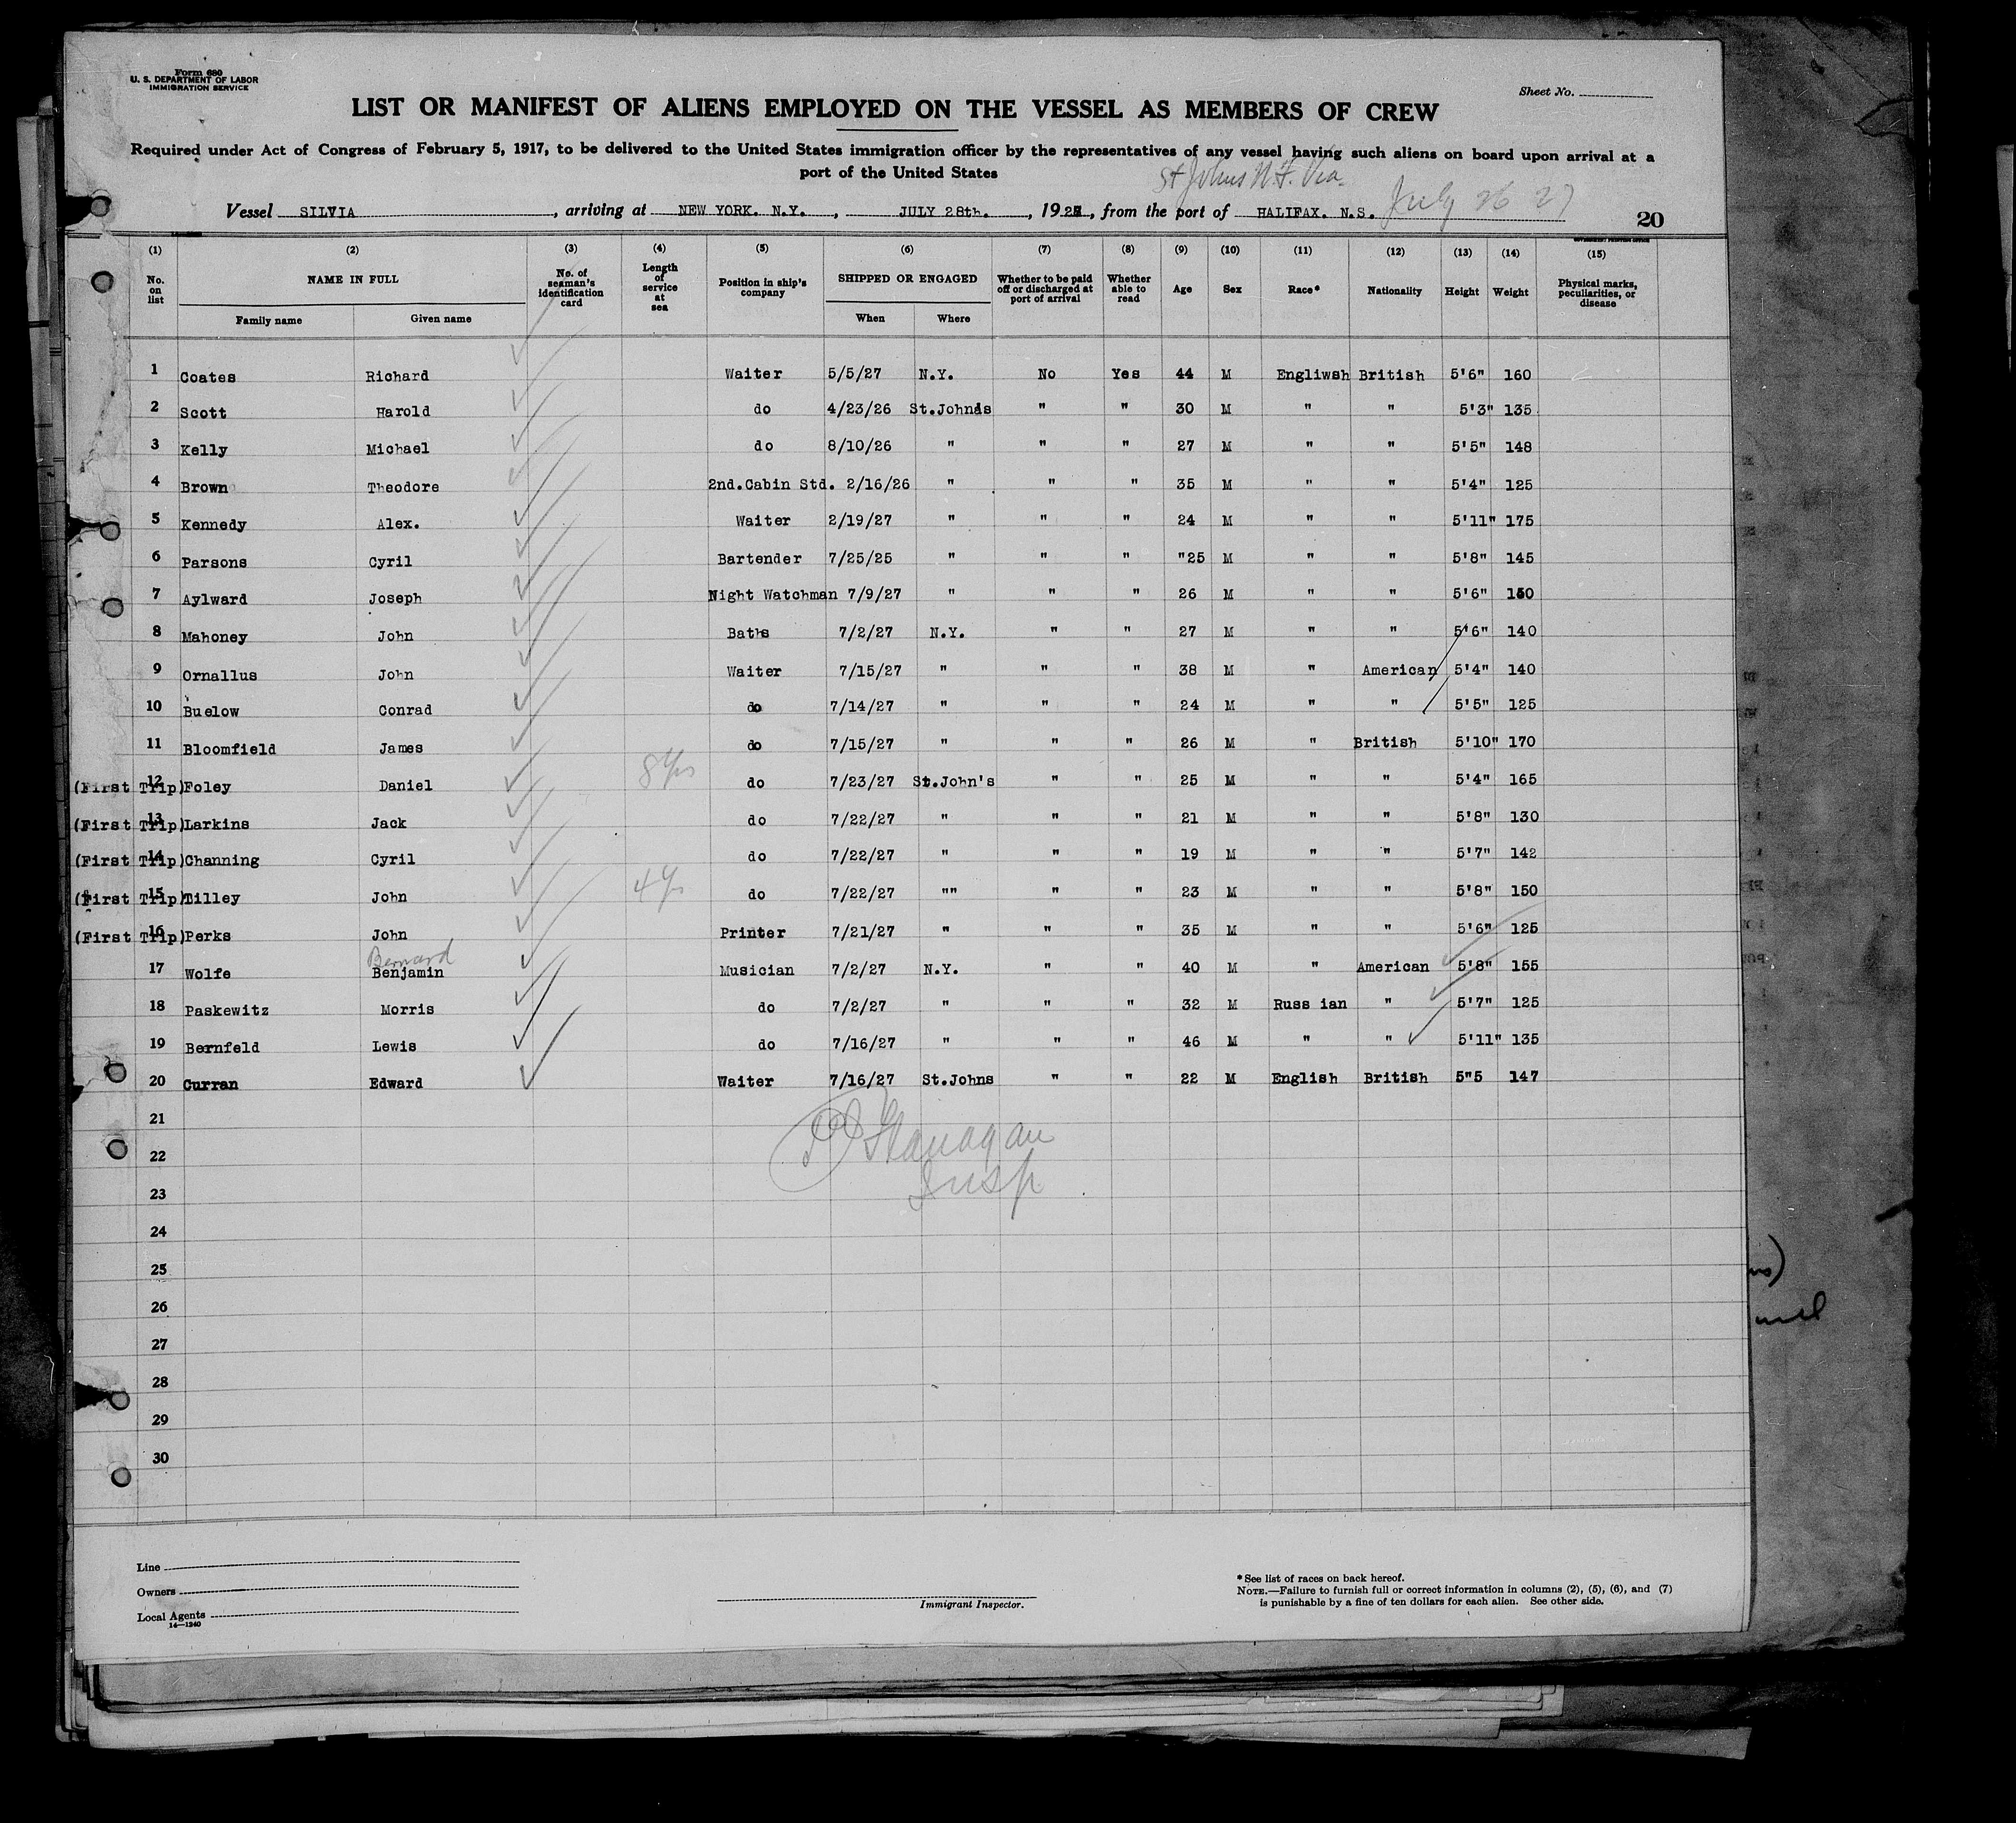 Form 680
U. S. DEPARTMENT OF LABOR
IMMIGRATION SERVICE
Sheet No.
LIST OR MANIFEST OF ALIENS EMPLOYED ON THE VESSEL AS MEMBERS OF CREW
Required under Act of Congress of February 5, 1917, to be delivered to the United States immigration officer by the representatives of any vessel having such aliens on board upon arrival at a
port of the United States
St Johns N.F. Via.
Vessel SILVIA, arriving at NEW YORK. N.Y., JULY 28th., 1927, from the port of HALIFAX. N.S. July 26 27
20
(1) (2) (3) (4) (5) (6) (7) (8) (9) (10) (11) (12) (13) (14) (15)
No. on list NAME IN FULL Family name Given name No. of seaman's identification card Length of service at sea Position in ship's company SHIPPED OR ENGAGED When Where Whether to be paid off or discharged at port of arrival Whether able to read Age Sex Race* Nationality Height Weight Physical marks, peculiarities, or disease
1 Coates Richard Waiter 5/5/27 N.Y. No Yes 44 M Engliwsh British 5'6" 160
2 Scott Harold do 4/23/26 St.Johnās " " 30 M " " 5'3" 135
3 Kelly Michael do 8/10/26 " " " 27 M " " 5'5" 148
4 Brown Theodore 2nd.Cabin Std. 2/16/26 " " " 35 M " " 5'4" 125
5 Kennedy Alex. Waiter 2/19/27 " " " 24 M " " 5'11" 175
6 Parsons Cyril Bartender 7/25/25 " " " "25 M " " 5'8" 145
7 Aylward Joseph Night Watchman 7/9/27 " " " 26 M " " 5'6" 150
8 Mahoney John Baths 7/2/27 N.Y. " " 27 M " " 5'6" 140
9 Ornallus John Waiter 7/15/27 " " " 38 M " American 5'4" 140
10 Buelow Conrad do 7/14/27 " " " 24 M " " 5'5" 125
11 Bloomfield James do 7/15/27 " " " 26 M " British 5'10" 170
(First Trip) 12 Foley Daniel 8 yrs do 7/23/27 St.John's " " 25 M " " 5'4" 165
(First Trip) 13 Larkins Jack do 7/22/27 " " " 21 M " " 5'8" 130
(First Trip) 14 Channing Cyril do 7/22/27 " " " 19 M " " 5'7" 142
(First Trip) 15 Tilley John 4 yrs do 7/22/27 "" " " 23 M " " 5'8" 150
(First Trip) 16 Perks John Printer 7/21/27 " " " 35 M " " 5'6" 125
Bernard
17 Wolfe Benjamin Musician 7/2/27 N.Y. " " 40 M " American 5'8" 155
18 Paskewitz Morris do 7/2/27 " " " 32 M Russ ian " 5'7" 125
19 Bernfeld Lewis do 7/16/27 " " " 46 M " " 5'11" 135
20 Curran Edward Waiter 7/16/27 St.Johns " " 22 M English British 5"5 147
21
22
Flanagan
Insp
23
24
25
26
27
28
29
30
Line
Owners
Local Agents
14—1240
Immigrant Inspector.
* See list of races on back hereof.
NOTE.—Failure to furnish full or correct information in columns (2), (5), (6), and (7)
is punishable by a fine of ten dollars for each alien. See other side.